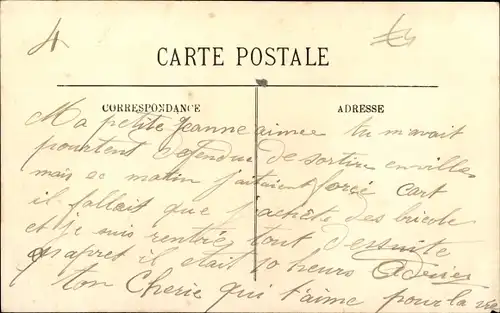 4
CARTE POSTALE
CORRESPONDANCE
ADRESSE
Ma petite Jeanne aimee tu m'avait
pourtent defendue de sortire en ville
mais ce matin j'aitaient forcé cart
il fallait que j'achete des bricole
et je suis rentrée tout dessuite
apret il etait 10 heurs Adieu
ton Cherie qui t'aime pour la vie